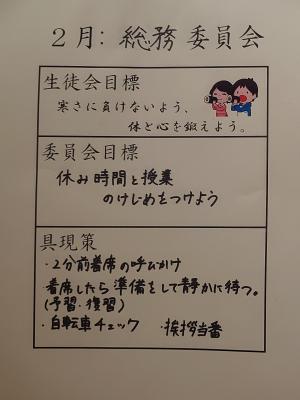 2月:総務委員会
生徒会目標
寒さに負けないよう、
体と心を鍛えよう。
委員会目標
休み時間と授業
のけじめをつけよう
具現策
・2分前着席の呼びかけ
着席したら準備をして静かに待つ。
(予習・復習)
・自転車チェック ・挨拶当番